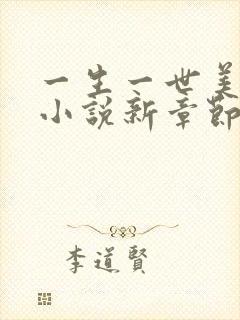 一生一世美
小说新章節
李道賢